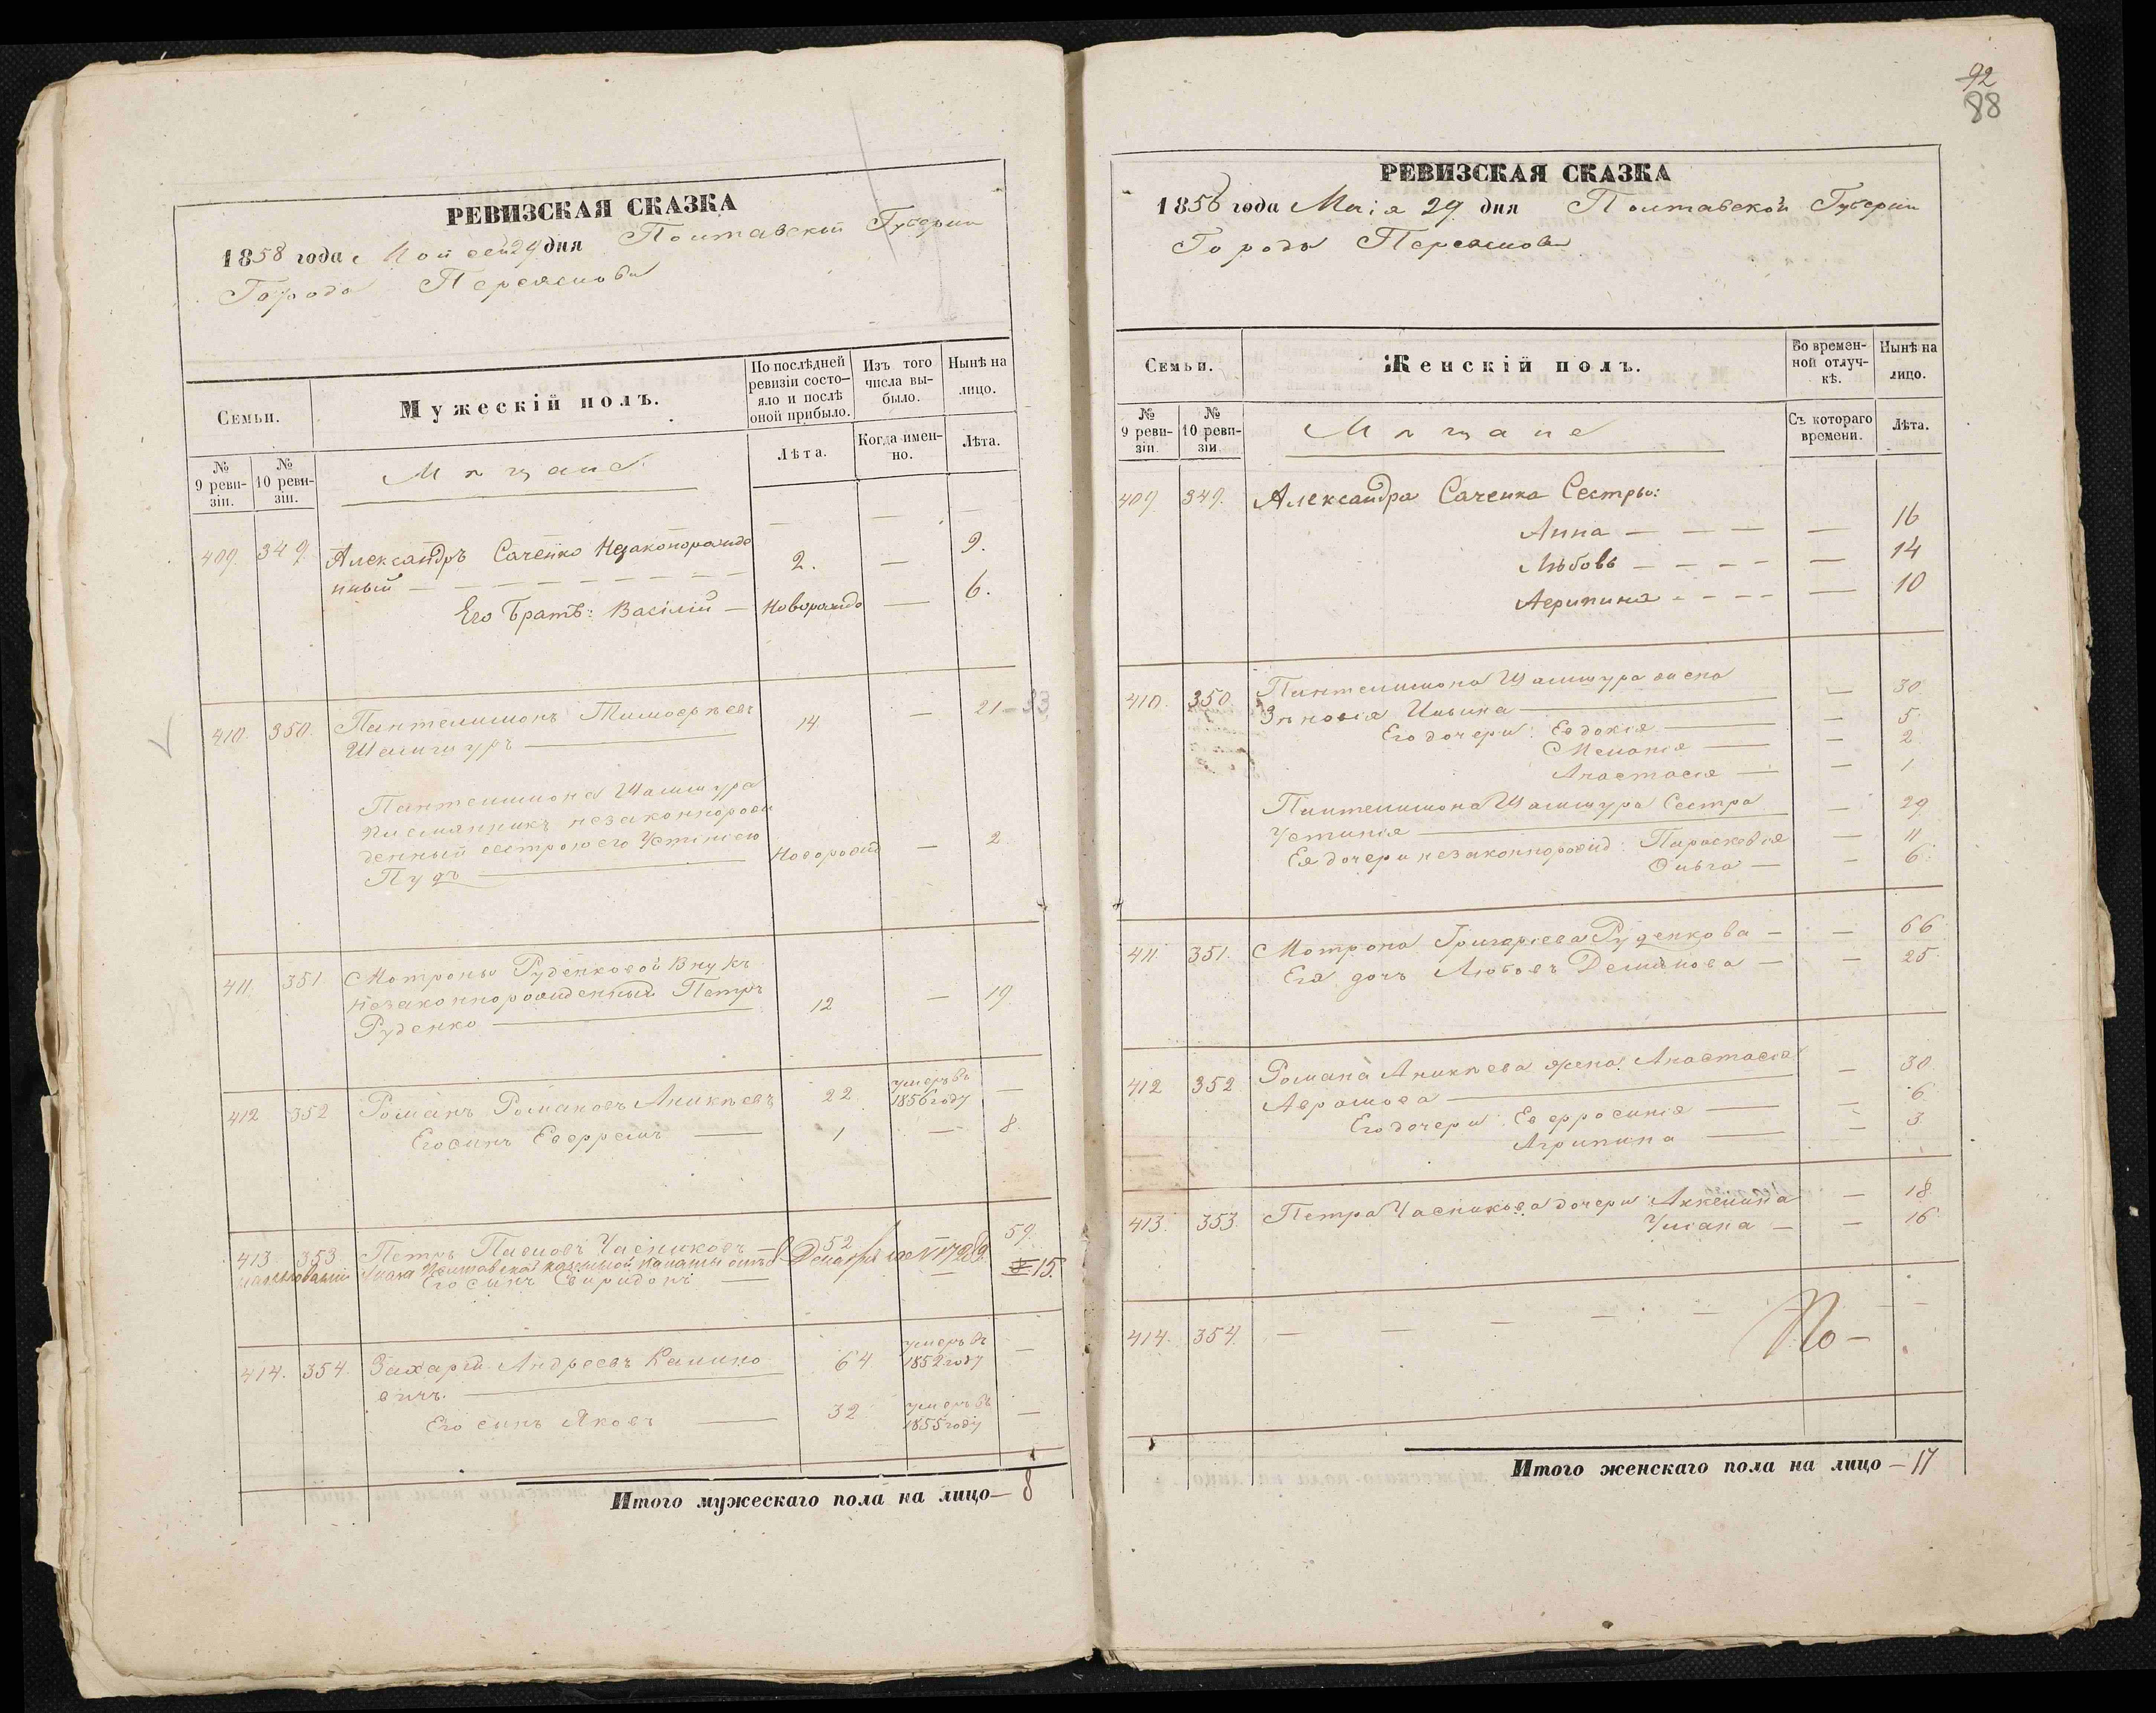 РЕВИЗСКАЯ СКАЗКА
1858 года Мая 29 дня Полтавской Губерніи
Города Переяслова
Семьи.
Мужескій полъ.
По послѣдней ревизіи состо-
яло и послѣ
оной прибыло.
Изъ того
числа вы-
было.
Нынѣ на
лицо.
№
9 реви-
зіи.
№
10 реви-
зіи.
Мѣщане
Лѣта.
Когда имен-
но.
Лѣта.
409. 349. Александръ Саченко Незаконорожде
нный — 2. — 9.
Его Братъ: Василій — Новорожде — 6.
410. 350. Пантелимонъ Тимофѣевъ
Шамшуръ — 14. — 21 — 33
Пантелимона Шамшура
племянникъ незаконнорож
денный сестрою его Устиніею
Пудъ — Новорожд — 2
411. 351. Мотроны Руденковой Внукъ
незаконнорожденный Петръ
Руденко — 12 — 19.
412 352 Романъ Романовъ Аникѣевъ 22. умеръ въ
1856 году —
Его сынъ Евфремъ — 1 — 8.
413. 353. Петръ Павловъ Часниковъ — 52 59.
Указа Полтавской казенной палаты отъ 8 Декабря за № 17282.
Его сынъ Свиридонъ — — 15.
414. 354. Захарій Андреевъ Калино
вичъ. — 64. умеръ въ
1852 году —
Его сынъ Яковъ — 32. умеръ въ
1855 году —
Итого мужескаго пола на лицо — 8
92
88
РЕВИЗСКАЯ СКАЗКА
1858 года Маія 29 дня Полтавской Губерніи
Города Переяслова
Семьи.
Женскій полъ.
Во времен-
ной отлуч-
кѣ.
Нынѣ на
лицо.
№
9 реви-
зіи.
№
10 реви-
зіи.
Мѣщане
Съ котораго
времени.
Лѣта.
409. 349. Александра Саченка Сестры:
Анна — — 16
Любовь — — 14
Агрипина — — 10
410. 350. Пантелимона Шамшура жена
Зѣновія Ильина — — 30
Его дочери: Евдокія — — 5.
Меланія — — 2.
Анастасія — — 1
Пантелимона Шамшура Сестра
Устинія — — 29.
Ея дочери незаконнорожд: Парасковія — 11
Ольга — — 6.
411. 351. Мотрона Григоріева Руденкова — — 66.
Ея дочь Любовь Демянова — — 25.
412 352. Романа Аникѣева жена Анастасія
Аврамова — — 30.
Его дочери: Евфросинія — — 6.
Агрипина — — 3
413. 353. Петра Часникова дочери: Аккелина — 18.
Уліана — — 16.
414. 354.
Итого женскаго пола на лицо — 17